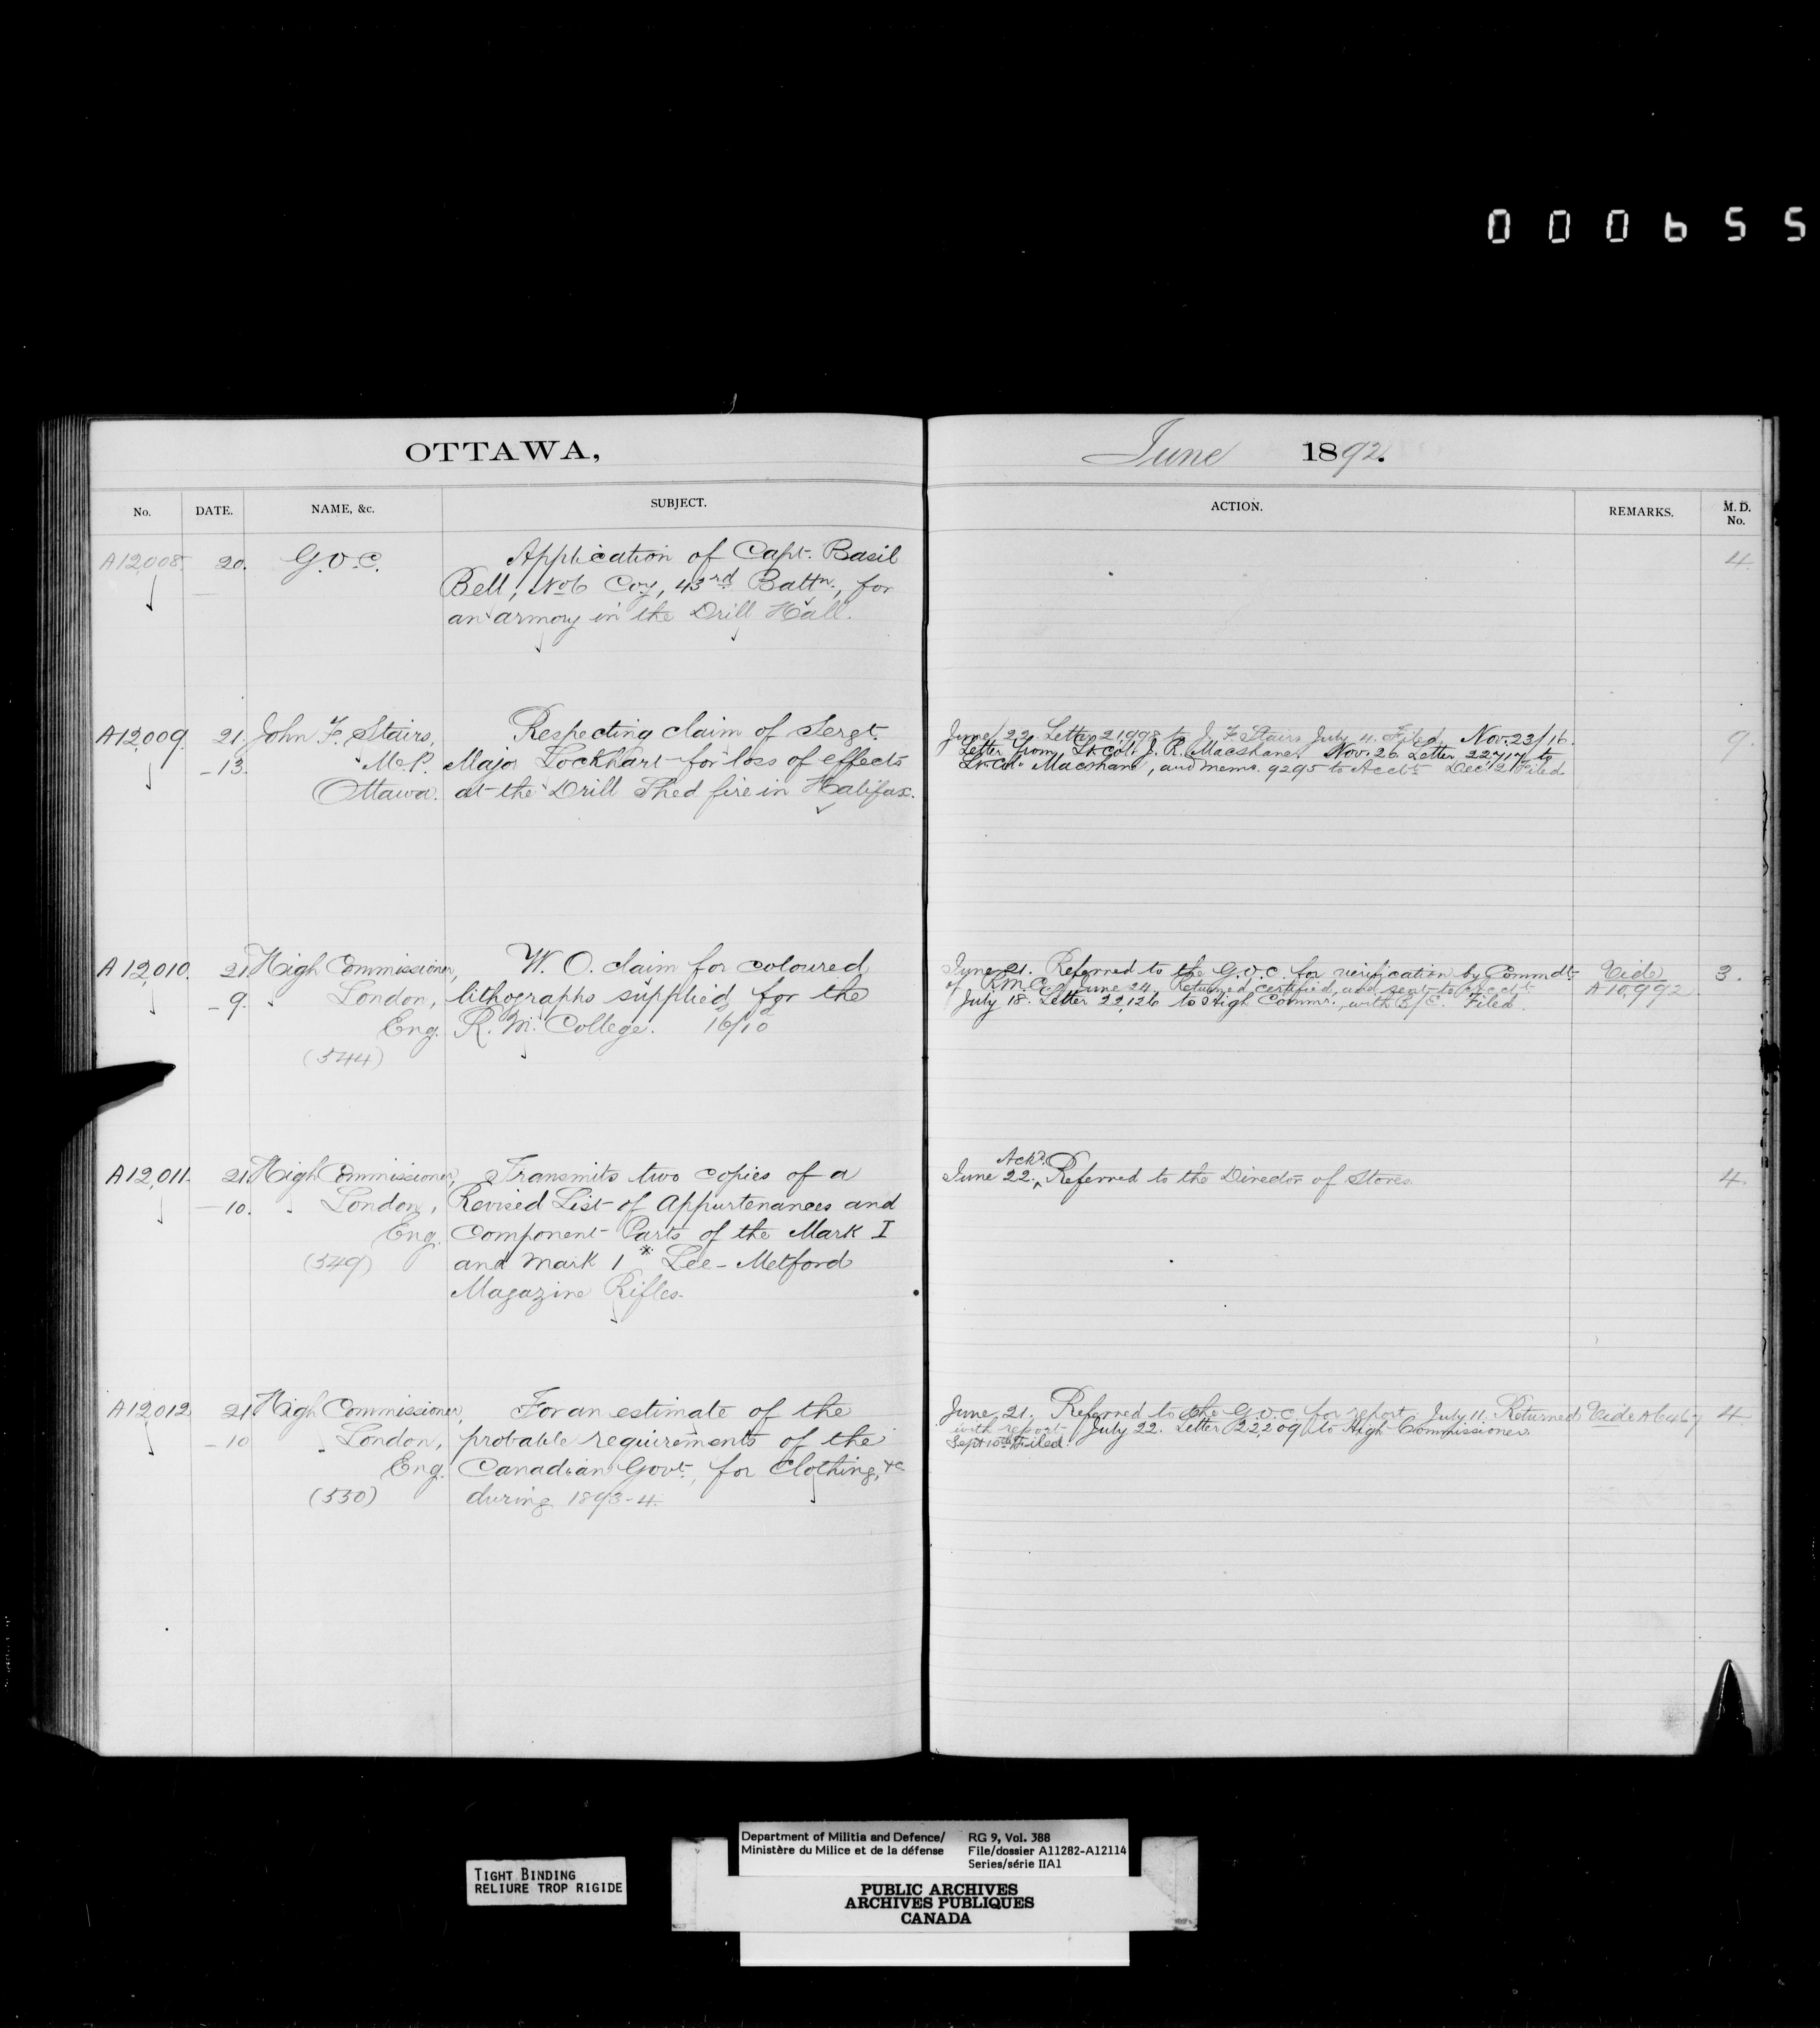 000655
OTTAWA,
June 1892.
No. DATE. NAME, &c. SUBJECT. ACTION. REMARKS. M. D. No.
A12,008 20. G.O.C. Application of Capt. Basil 4.
Bell, No 6 Coy, 43rd Battn., for
an armory in the Drill Hall.
A12,009. 21. John F. Stairs, Respecting claim of Sergt. June 22. Letter 21,998 to J. F. Stairs July 4. Filed. Nov. 23/16. 9.
-13. M.P. Major Lockhart for loss of effects Letter from Lt. Col. J. R. Macshane. Nov. 26. Letter 22717 to
Ottawa. at the Drill Shed fire in Halifax. Lt. Col. Macshane, and memo. 9295 to Acctt. Dec. 2 Filed
A12,010. 21. High Commissioner, W. O. claim for coloured June 21. Referred to the G.O.C. for verification by Commdt. Vide 3.
-9. " London, lithographs supplied for the of R.M.C. June 24. Returned certified, and sent to Acctt. A10,992
Eng. R. M. College. 16/10 July 18. Letter 22,126 to High Commr., with B/E. Filed.
(544)
A12,011. 21. High Commissioner, Transmits two copies of a June 22. Ackd. Referred to the Director of Stores. 4.
-10. " London, Revised List of Appurtenances and
Eng. Component Parts of the Mark I
(549) and Mark 1* Lee-Metford
Magazine Rifles.
A12,012 21 High Commissioner, For an estimate of the June 21. Referred to the G.O.C. for report. July 11. Returned Vide A6467 4.
-10 " London, probable requirements of the with report. July 22. Letter 22,209 to High Commissioner.
Eng. Canadian Govt., for Clothing, &c Sept 10th Filed.
(550) during 1893-4.
TIGHT BINDING
RELIURE TROP RIGIDE
Department of Militia and Defence/ RG 9, Vol. 388
Ministère du Milice et de la défense File/dossier A11282-A12114
Series/série IIA1
PUBLIC ARCHIVES
ARCHIVES PUBLIQUES
CANADA